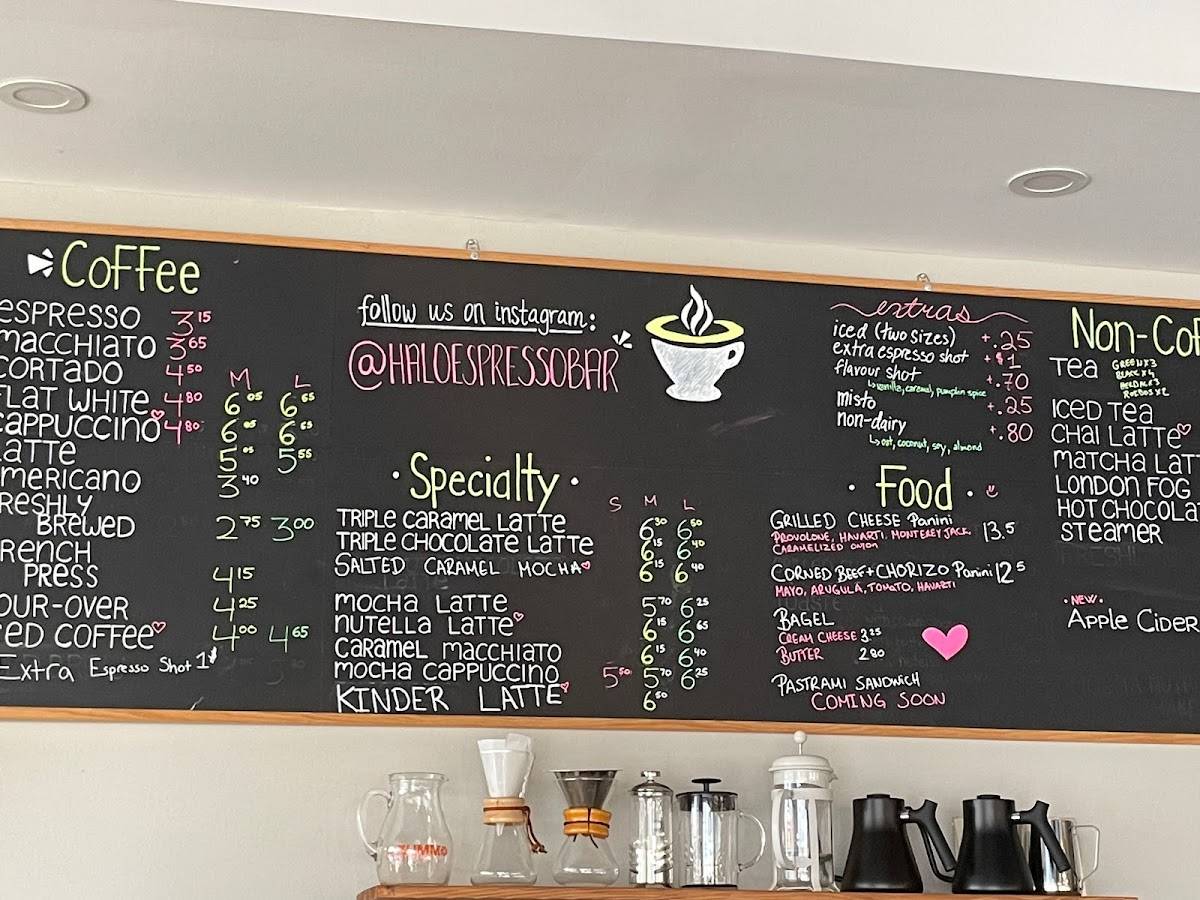 Coffee
ESPRESSO 3.15
MACCHIATO 3.65
CORTADO 4.50 M L
FLAT WHITE 4.80 6.05 6.65
CAPPUCCINO 4.80 6.05 6.65
LATTE 5.05 5.55
AMERICANO 3.40
FRESHLY
BREWED 2.75 3.00
FRENCH
PRESS 4.15
POUR-OVER 4.25
ICED COFFEE 4.00 4.65
Extra Espresso Shot 1
follow us on instagram:
@HALOESPRESSOBAR
Specialty
S M L
TRIPLE CARAMEL LATTE 6.30 6.80
TRIPLE CHOCOLATE LATTE 6.15 6.40
SALTED CARAMEL MOCHA 6.15 6.40
MOCHA LATTE 5.70 6.25
NUTELLA LATTE 6.15 6.65
CARAMEL MACCHIATO 6.15 6.40
MOCHA CAPPUCCINO 5.50 5.70 6.25
KINDER LATTE 6.50
extras
iced (two sizes) +.25
extra espresso shot +$1
flavour shot +.70
vanilla, caramel, pumpkin spice
misto +.25
non-dairy +.80
oat, coconut, soy, almond
Food
GRILLED CHEESE Panini 13.5
PROVOLONE, HAVARTI, MONTEREY JACK,
CARAMELIZED ONION
CORNED BEEF + CHORIZO Panini 12.5
MAYO, ARUGULA, TOMATO, HAVARTI
BAGEL
CREAM CHEESE 3.25
BUTTER 2.80
PASTRAMI SANDWICH
COMING SOON
Non-Cof
TEA GREEN x3
BLACK x4
HERBAL x3
ROOIBOS x2
ICED TEA
CHAI LATTE
MATCHA LATT
LONDON FOG
HOT CHOCOLAT
STEAMER
• NEW •
Apple CIDER
ZUMMO